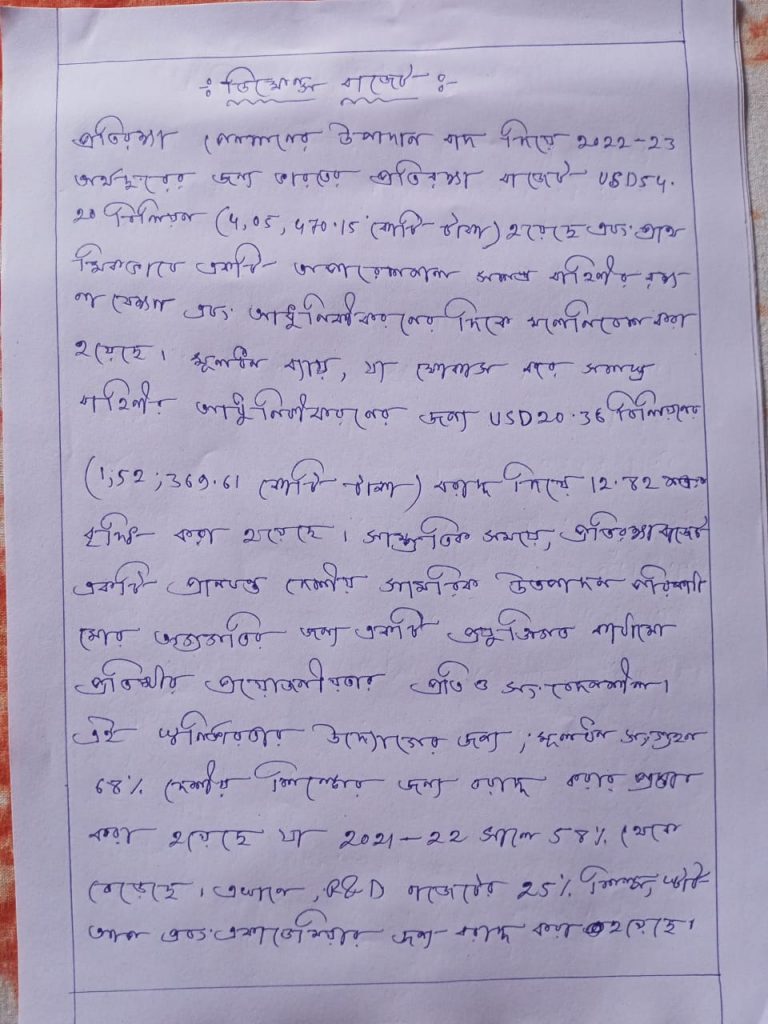 ঃ ডিফেন্স বাজেট ঃ-
প্রতিরক্ষা পেনশনের উপাদান বাদ দিয়ে 2022-23
অর্থবছরের জন্য ভারতের প্রতিরক্ষা বাজেট USD54.
20 বিলিয়ন (4,05,470.15 কোটি টাকা) হয়েছে এবং প্রাথ
মিকভাবে একটি অপারেশনাল সশস্ত্র বাহিনীর রক্ষ
ণাবেক্ষণ এবং আধুনিকীকরনের দিকে মনোনিবেশ করা
হয়েছে। মূলধন ব্যয়, যা ফোকাস করে সশস্ত্র
বাহিনীর আধুনিকীকরনের জন্য USD20.36 বিলিয়নের
(1,52,369.61 কোটি টাকা) বরাদ্দ দিয়ে 12.82 শতাংশ
বৃদ্ধি করা হয়েছে। সাম্প্রতিক সময়ে, প্রতিরক্ষা বাজেট
একটি প্রানবন্ত দেশীয় সামরিক উতপাদন পরিকাঠা
মোর অগ্রগতির জন্য একটি প্রযুক্তিগত কাঠামো
প্রতিষ্ঠার প্রয়োজনীয়তার প্রতি ও সংবেদনশীল।
এই স্বনির্ভরতার উদ্যোগের জন্য, মূলধন সংগ্রহের
68% দেশীয় শিল্পের জন্য বরাদ্দ করার প্রস্তাব
করা হয়েছে যা 2021-22 সালে 58% থেকে
বেড়েছে। এখানে, R&D বাজেটের 25% শিল্প, স্টার্ট
আপ এবং একাডেমিয়ার জন্য বরাদ্দ করা হয়েছে।